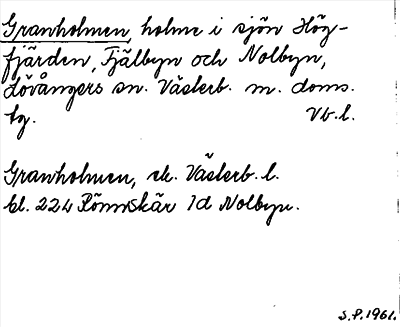 Granholmen, holme i sjön Hög-
fjärden, Fjälbyn och Nolbyn,
Lövångers sn. Västerb. m. doms.
tg. Vb. l.
Granholmen, ek. Västerb. l.
bl. 224 Rönnskär 1d Nolbyn.
S.P. 1961.